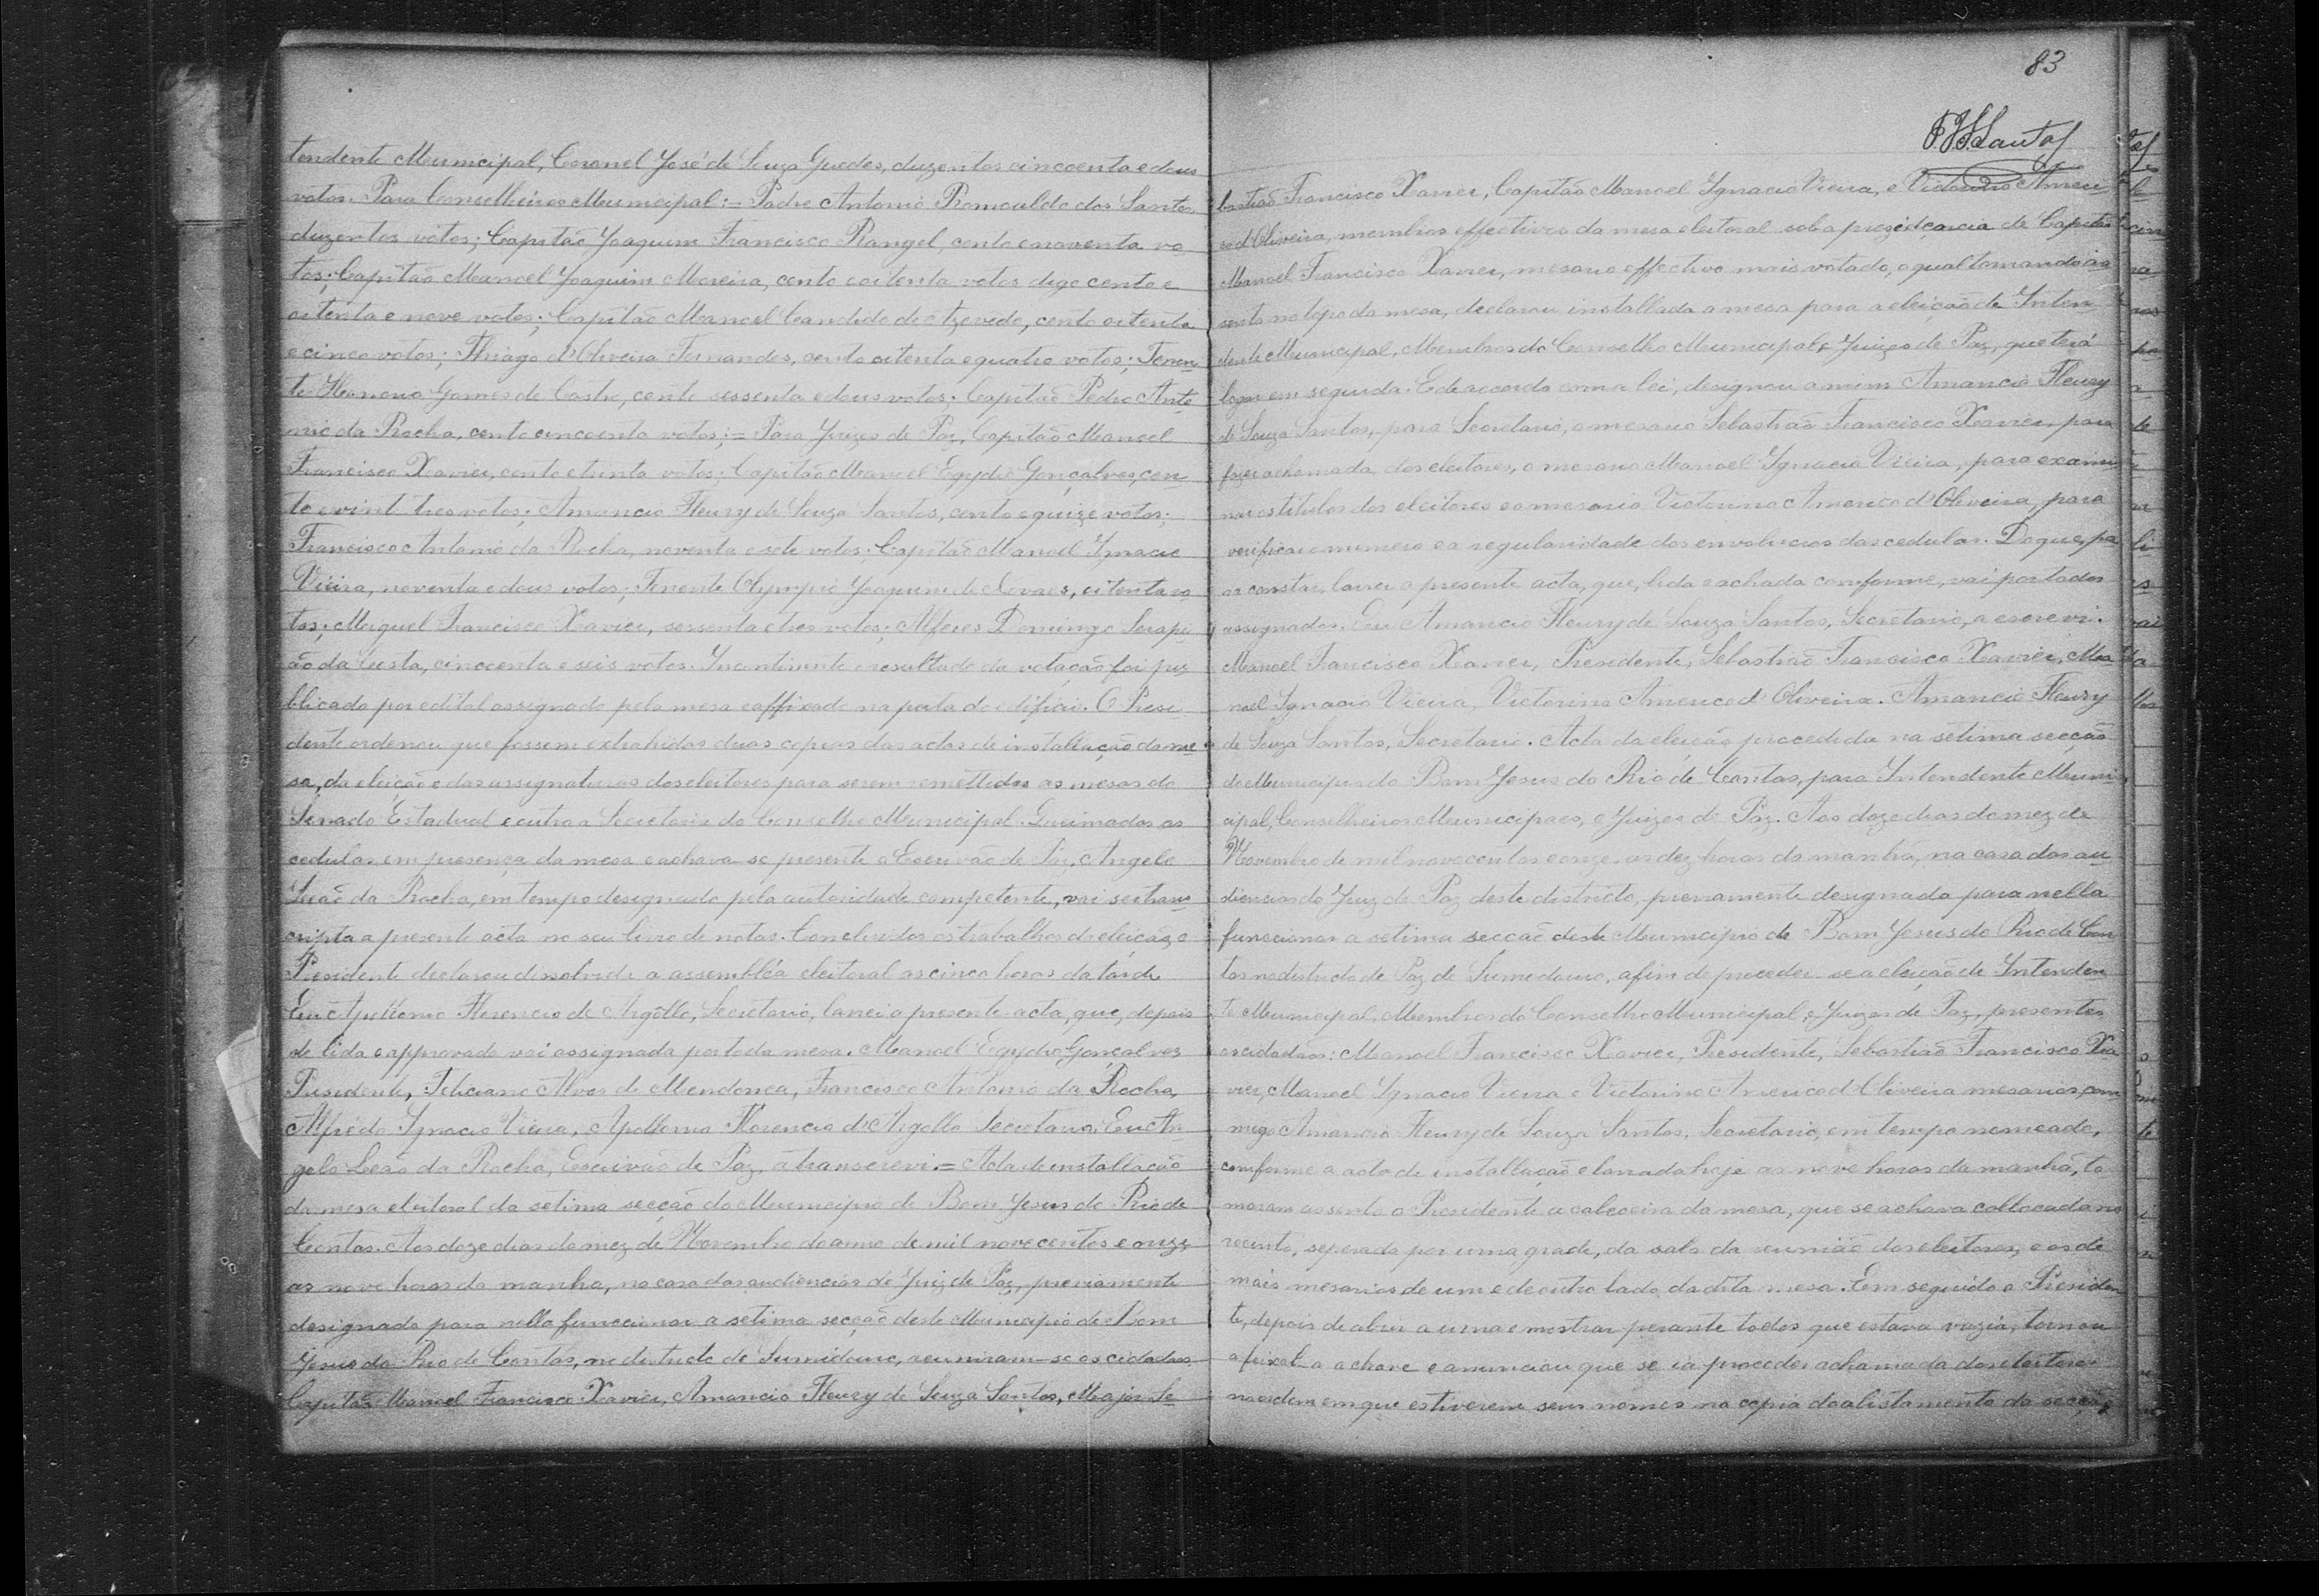 tendente Municipal, Coronel José de Souza Guedes, duzentos cincoenta e dous
votos. Para Conselheiros Municipal:= Padre Antonio Romoaldo dos Santos
duzentos votos; Capitão Joaquim Francisco Rangel, cento e noventa vo
tos; Capitão Manoel Joaquim Moreira, cento e oitenta votos digo cento e
oitenta e nove votos; Capitão Manoel Candido de Azevedo, cento oitenta
e cinco votos; Thiago d'Oliveira Fernandes, cento oitenta e quatro votos; Tenen
te Gomes de Castro, cento sessenta e dous votos; Capitão Pedro Anto
nio da Rocha, cento cincoenta votos;= Para Juizes de Paz, Capitão Manoel
Francisco Xavier, cento e trinta votos; Capitão Manoel Egydio Gonçalves, cen
to e vint tres votos; Amancio Fleury de Souza Santos, cento e quize votos;
Francisco Antonio da Rocha, noventa e sete votos; Capitão Manoel Ignacio
Vieira, noventa e dous votos; Tenente Olympio Joaquim de Novaes, oitenta vo
tos; Miguel Francisco Xavier, sessenta e tres votos; Alferes Domingo Serapi
ão da Costa, cincoenta e seis votos. Incontinente o resultado da votação foi pu
blicado por edital assignado pela mesa e affixado na porta do edificio. O Presi
dente ordenou que fossem extrahidas duas copias das actas de installação da me
sa, da eleição e das assignaturas dos eleitores para serem remettidas as mesas do
Senado Estadual e outra a Secretaria do Conselho Municipal. Queimadas as
cedulas em presença da mesa e achava-se presente o Escrivão de Paz, Angelo
Leão da Rocha, em tempo designado pela autoridade competente, vai ser trans
cripta a presente acta no seu livro de notas. Concluidos os trabalhos da eleição o
Presidente declarou dissolvida a assembléa eleitoral as cinco horas da tarde
Eu Apollonio Florencio de Argollo, Secretario, lancei a presente acta, que, depois
de lida e approvada vai assignada por toda mesa. Manoel Egydio Gonçalves
Presidente, Feliciano Alves de Mendonca, Francisco Antonio da Rocha,
Alfredo Ignacio Vieira, Apollonio Florencio d'Argollo Secretario. Eu An
gelo Leão da Rocha, Escrivão de Paz, a transcrevi.= Acta de installação
da mesa eleitoral da setima secção do Municipio de Bom Jesus do Rio de
Contas. Aos doze dias do mez de Novembro do anno de mil nove centos e onze
as nove horas da manha, na casa das audiencias do Juiz de Paz, previamente
designada para nella funccionar a setima secção deste Municipio de Bom
Jesus do Rio de Contas, no districto de Sumidouro, reuniram-se os cidadãos
Capitão Manoel Francisco Xavier, Amancio Fleury de Souza Santos, Major Se
83
bastião Francisco Xavier, Capitão Manoel Ignacio Vieira, e Victorino Ameri
co d'Oliveira, membros effectivos da mesa eleitoral sob a do Capitão
Manoel Francisco Xavier, mesario effectivo mais votado, o qual tomando as
sento no topo da mesa, declarou installada a mesa para a eleição de Inten
dente Municipal, Membros do Conselho Municipal, e Juizes de Paz, que terá
logar em seguida. E de accordo com a lei, designou a mim Amancio Fleury
de Souza Santos, para Secretario, o mesario Sebastião Francisco Xavier, para
fazer a chamada dos eleitores, o mesario Manoel Ignacio Vieira, para exami
nar os titulos dos eleitores e o mesario Victorino Americo d'Oliveira, para
verificar o numero e a regularidade dos envolucros das cedulas. Do que, pa
ra constar, lavrei a presente acta, que, lida e achada conforme, vai por todos
assignados. Eu Amancio Fleury de Souza Santos, Secretario, a escrevi.
Manoel Francisco Xavier, Presidente, Sebastião Francisco Xavier, Ma
noel Ignacio Vieira, Victorino Americo d'Oliveira. Amancio Fleury
de Souza Santos, Secretario. Acta da eleição procedida na setima secção
do Municipio do Bom Jesus do Rio de Contas, para Intendente Muni
cipal, Conselheiros Municipaes, e Juizes de Paz. Aos doze dias do mez de
Novembro de mil nove centos e onze, as dez horas da manhã, na casa das au
diencias do Juiz de Paz deste districto, previamente designada para nella
funccionar a setima secção deste Municipio de Bom Jesus do Rio de Con
tas no districto de Paz de Sumidouro, afim de proceder-se a eleição de Intenden
te Municipal, Membros do Conselho Municipal, e Juizes de Paz, presentes
os cidadãos: Manoel Francisco Xavier, Presidente, Sebastião Francisco Xa
vier, Manoel Ignacio Vieira e Victorino Americo d'Oliveira mesarios, com
migo Amancio Fleury de Souza Santos, Secretario, em tempo nomeado,
conforme a acta de installação e lavrada hoje as nove horas da manhã, to
maram assento o Presidente a cabeceira da mesa, que se achava collocada no
recinto, separado por uma grade, da sala da reunião dos eleitores, e os de
mais mesarios de um e de outro lado, da dita mesa. Em seguida o Presiden
te, depois de abrir a urna e mostrar perante todos que estava vazia, tornou
a feixal-a a chave e anunciou que se ia proceder a chamada dos eleitores
na ordem em que estiverem seus nomes na copia do alistamento da secção,